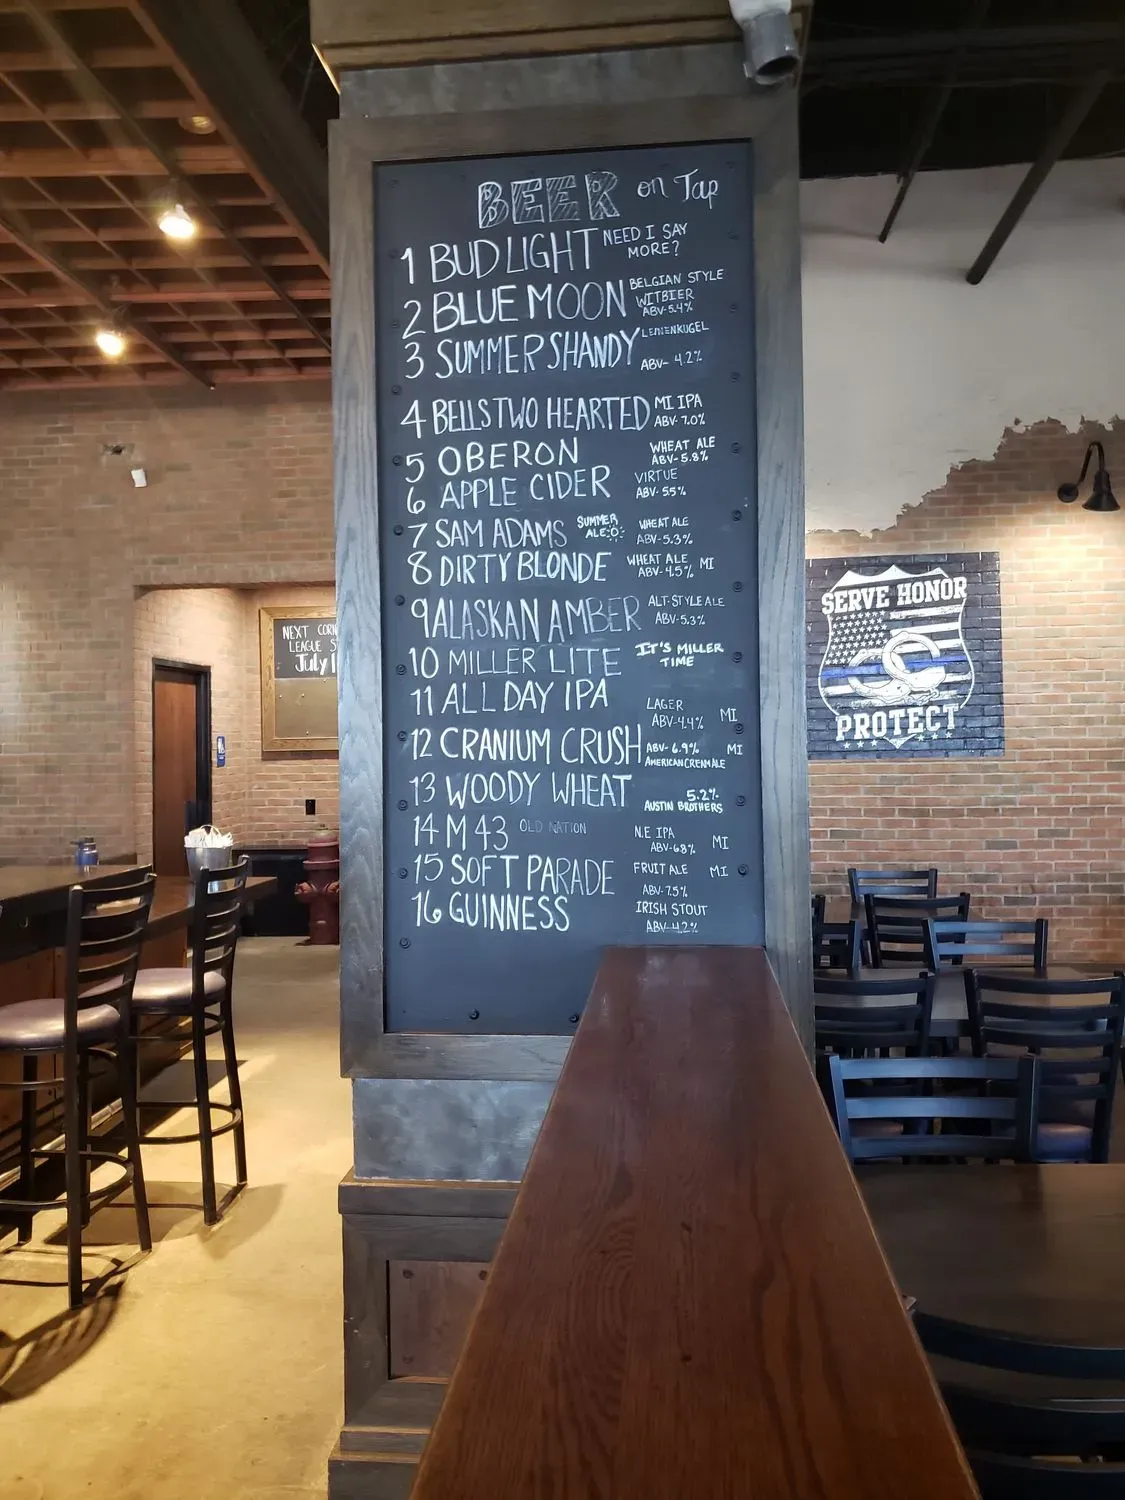 BEER on Tap
1 BUD LIGHT NEED I SAY
MORE?
2 BLUE MOON BELGIAN STYLE
WITBIER
ABV-5.4%
3 SUMMER SHANDY LEINENKUGEL
ABV- 4.2%
4 BELLS TWO HEARTED MI IPA
ABV-7.0%
5 OBERON WHEAT ALE
ABV-5.8%
6 APPLE CIDER VIRTUE
ABV-5.5%
7 SAM ADAMS SUMMER
ALE WHEAT ALE
ABV-5.3%
8 DIRTY BLONDE WHEAT ALE MI
ABV-4.5%
9 ALASKAN AMBER ALT-STYLE ALE
ABV-5.3%
10 MILLER LITE IT'S MILLER
TIME
11 ALL DAY IPA LAGER
ABV-4.4% MI
12 CRANIUM CRUSH ABV-6.9% MI
AMERICAN CREAM ALE
13 WOODY WHEAT 5.2%
AUSTIN BROTHERS
14 M 43 OLD NATION N.E IPA
ABV-6.8% MI
15 SOFT PARADE FRUIT ALE MI
ABV-7.5%
16 GUINNESS IRISH STOUT
ABV-4.2%
NEXT CORN
LEAGUE S
July 1
SERVE HONOR
PROTECT